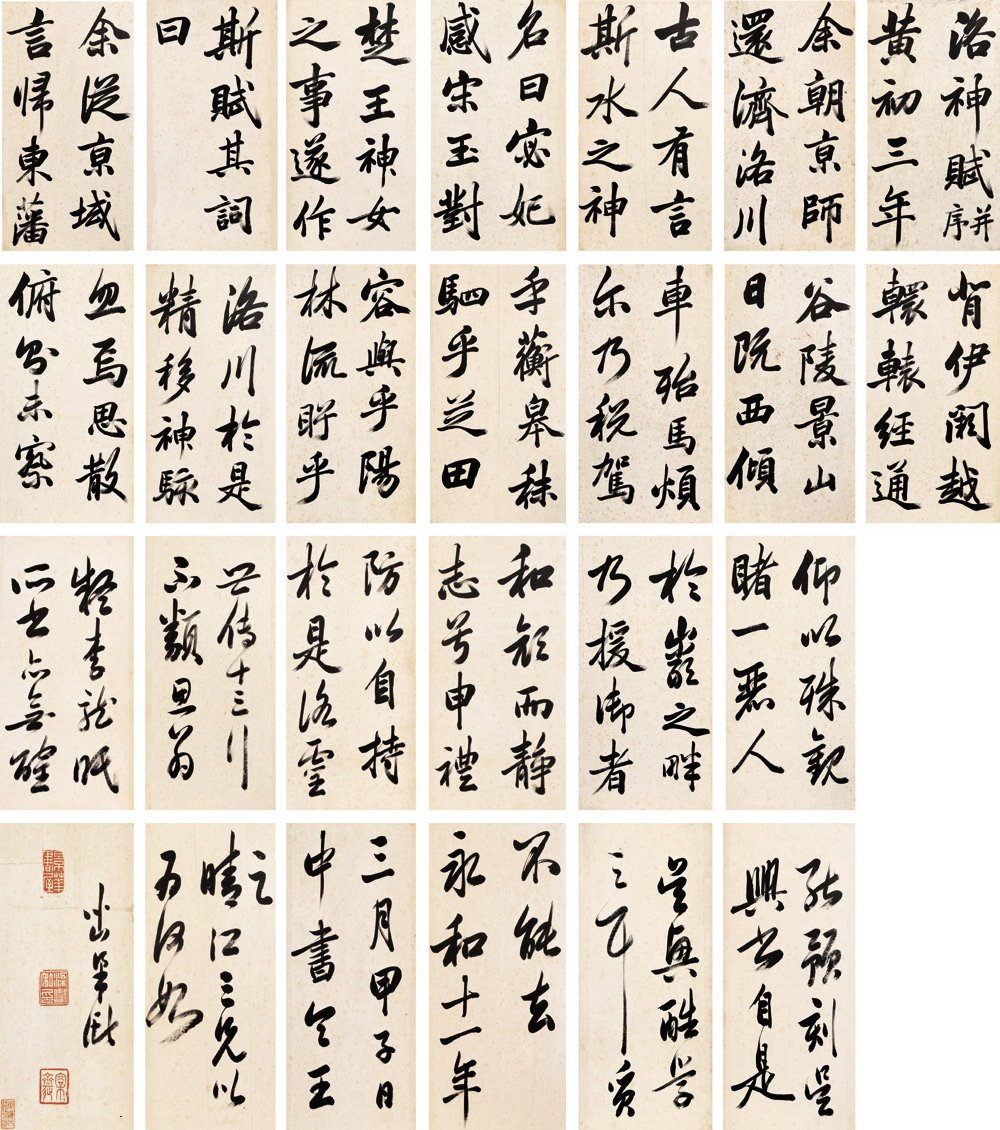 洛神賦并序
黄初三年
余朝京師
還濟洛川
古人有言
斯水之神
名曰宓妃
感宋玉對
楚王神女
之事遂作
斯賦其詞
曰
余從京域
言歸東藩
背伊闕越
轘轅經通
谷陵景山
日既西傾
車殆馬煩
尔乃税駕
乎蘅皋秣
駟乎芝田
容與乎陽
林流盼乎
洛川於是
精移神駭
忽焉思散
俯則未察
仰以殊觀
睹一麗人
於巖之畔
乃援御者
和顔而静
志兮申禮
防以自持
於是洛靈
世傳十三行
不類思翁
疑李龍眠
所書亦無確
刻吴
興書自是
吴興酷學
之耳質
不能去
永和十一年
三月甲子日
中書令王
之
晴江三兄以
为何如